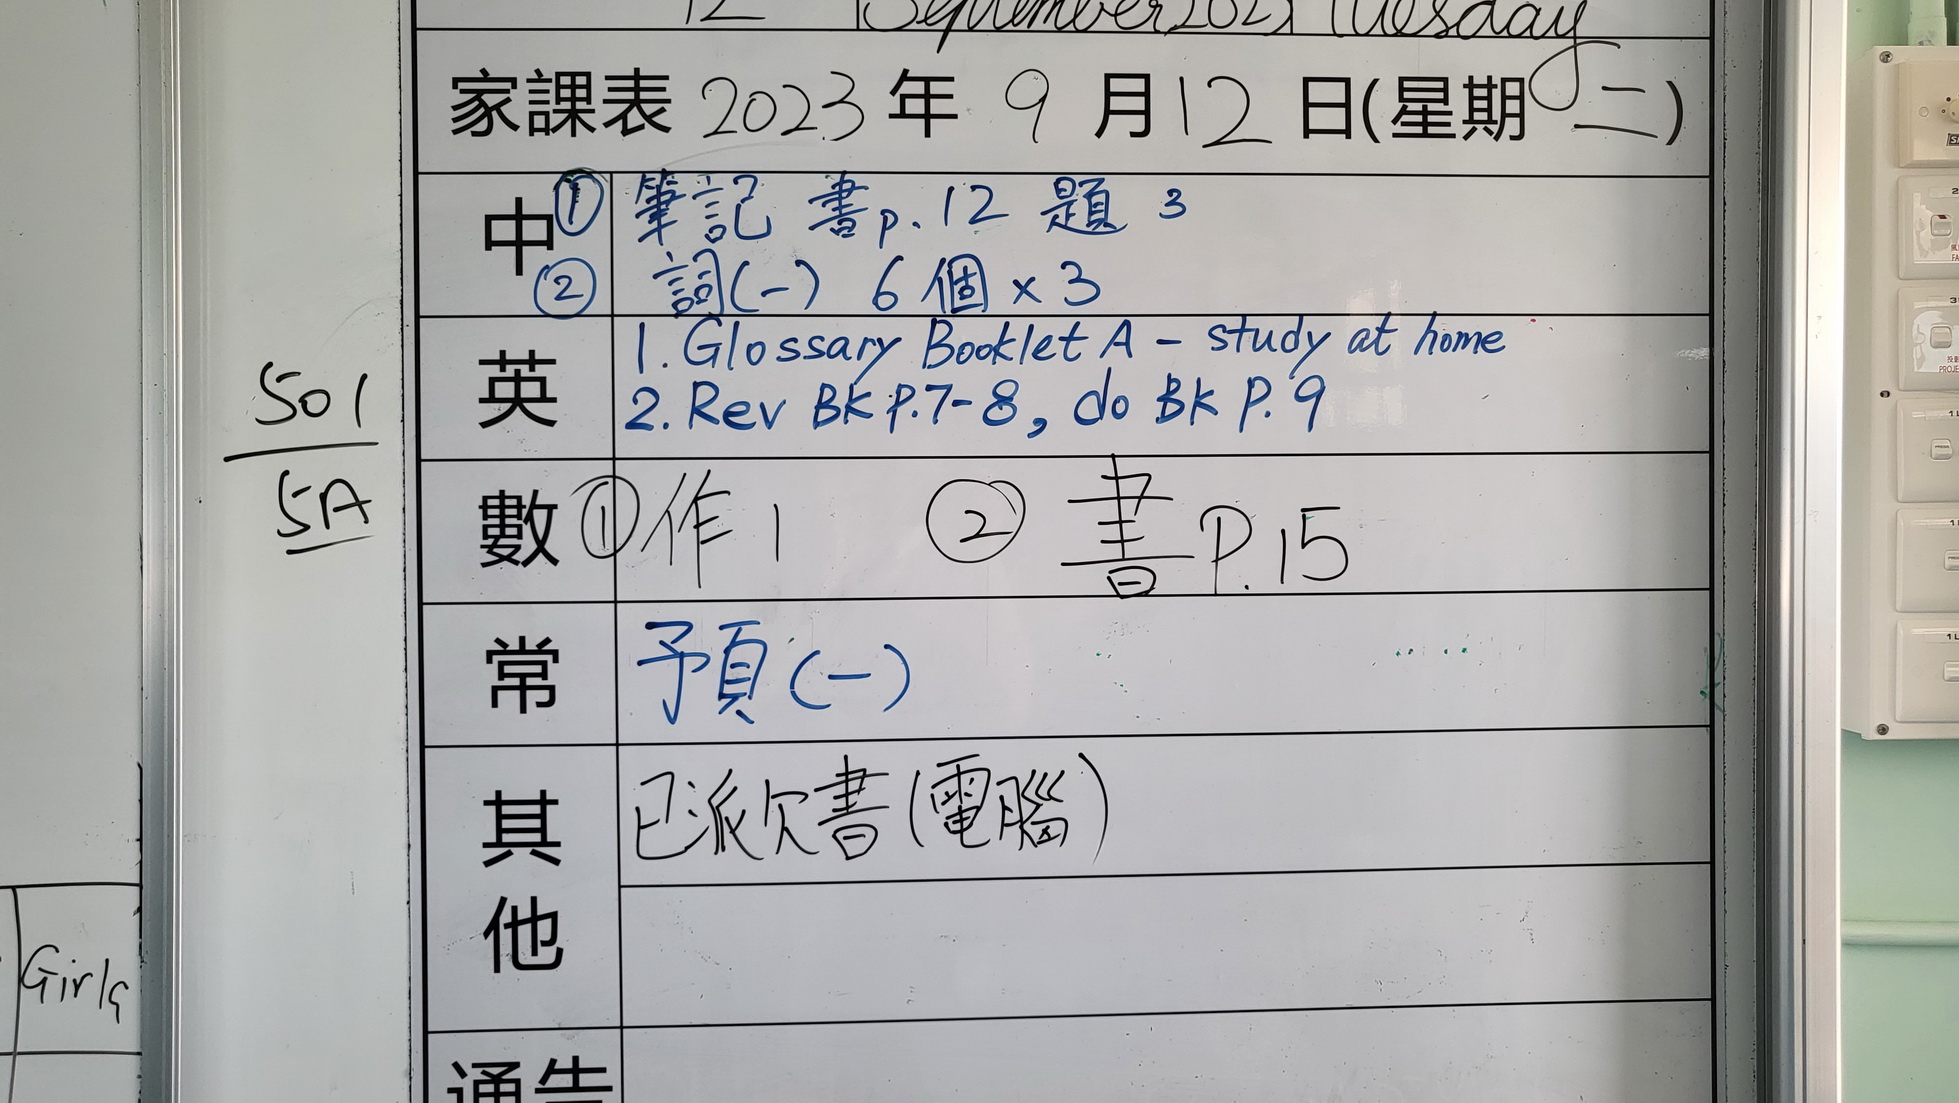 12 September 2023 Tuesday
家課表 2023 年 9 月 12 日(星期二)
中
① 筆記 書p.12 題 3
② 詞(一) 6個×3
英
1. Glossary Booklet A - study at home
2. Rev BK P.7-8, do BK P.9
數
① 作1 ② 書P.15
常
預(一)
其他
已派欠書(電腦)
通告
501
5A
Girls